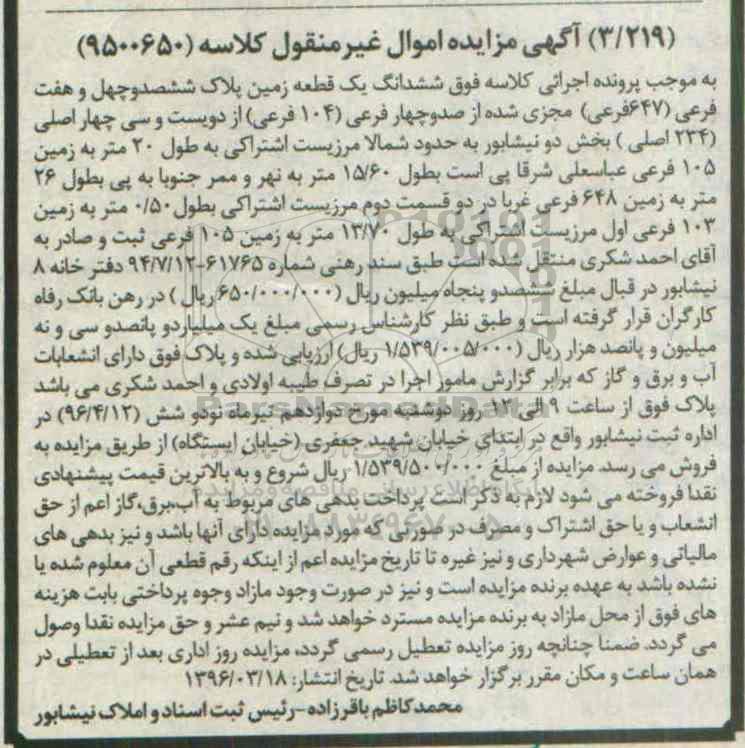 (۳/۲۱۹) آگهی مزایده اموال غیرمنقول کلاسه (۹۵۰۰۶۵۰)
به موجب پرونده اجرائی کلاسه فوق ششدانگ یک قطعه زمین پلاک ششصدوچهل و هفت
فرعی (۶۴۷فرعی) مجزی شده از صدوچهار فرعی (۱۰۴ فرعی) از دویست و سی چهار اصلی
(۲۳۴ اصلی ) بخش دو نیشابور به حدود شمالا مرزیست اشتراکی به طول ۲۰ متر به زمین
۱۰۵ فرعی عباسعلی شرقا پی است بطول ۱۵/۶۰ متر به نهر و ممر جنوبا به پی بطول ۲۶
متر به زمین ۶۴۸ فرعی غربا در دو قسمت دوم مرزیست اشتراکی بطول ۰/۵۰ متر به زمین
۱۰۳ فرعی اول مرزیست اشتراکی به طول ۱۳/۷۰ متر به زمین ۱۰۵ فرعی ثبت و صادر به
آقای احمد شکری منتقل شده است طبق سند رهنی شماره ۶۱۷۶۵-۹۴/۷/۱۲ دفتر خانه ۸
نیشابور در قبال مبلغ ششصدو پنجاه میلیون ریال (۶۵۰/۰۰۰/۰۰۰ ریال ) در رهن بانک رفاه
کارگران قرار گرفته است و طبق نظر کارشناس رسمی مبلغ یک میلیاردو پانصدو سی و نه
میلیون و پانصد هزار ریال (۱/۵۳۹/۰۰۵/۰۰۰ ریال) ارزیابی شده و پلاک فوق دارای انشعابات
آب و برق و گاز که برابر گزارش مامور اجرا در تصرف طیبه اولادی و احمد شکری می باشد
پلاک فوق از ساعت ۹ الی ۱۲ روز دوشنبه مورخ دوازدهم تیرماه نودو شش (۹۶/۴/۱۲) در
اداره ثبت نیشابور واقع در ابتدای خیابان شهید جعفری (خیابان ایستگاه) از طریق مزایده به
فروش می رسد. مزایده از مبلغ ۱/۵۳۹/۵۰۰/۰۰۰ ریال شروع و به بالاترین قیمت پیشنهادی
نقدا فروخته می شود لازم به ذکر است پرداخت بدهی های مربوط به آب،برق،گاز اعم از حق
انشعاب و یا حق اشتراک و مصرف در صورتی که مورد مزایده دارای آنها باشد و نیز بدهی های
مالیاتی و عوارض شهرداری و نیز غیره تا تاریخ مزایده اعم از اینکه رقم قطعی آن معلوم شده یا
نشده باشد به عهده برنده مزایده است و نیز در صورت وجود مازاد وجوه پرداختی بابت هزینه
های فوق از محل مازاد به برنده مزایده مسترد خواهد شد و نیم عشر و حق مزایده نقدا وصول
می گردد. ضمنا چنانچه روز مزایده تعطیل رسمی گردد، مزایده روز اداری بعد از تعطیلی در
همان ساعت و مکان مقرر برگزار خواهد شد. تاریخ انتشار: ۱۳۹۶/۰۳/۱۸
محمدکاظم باقرزاده-رئیس ثبت اسناد و املاک نیشابور
ParsNamadData